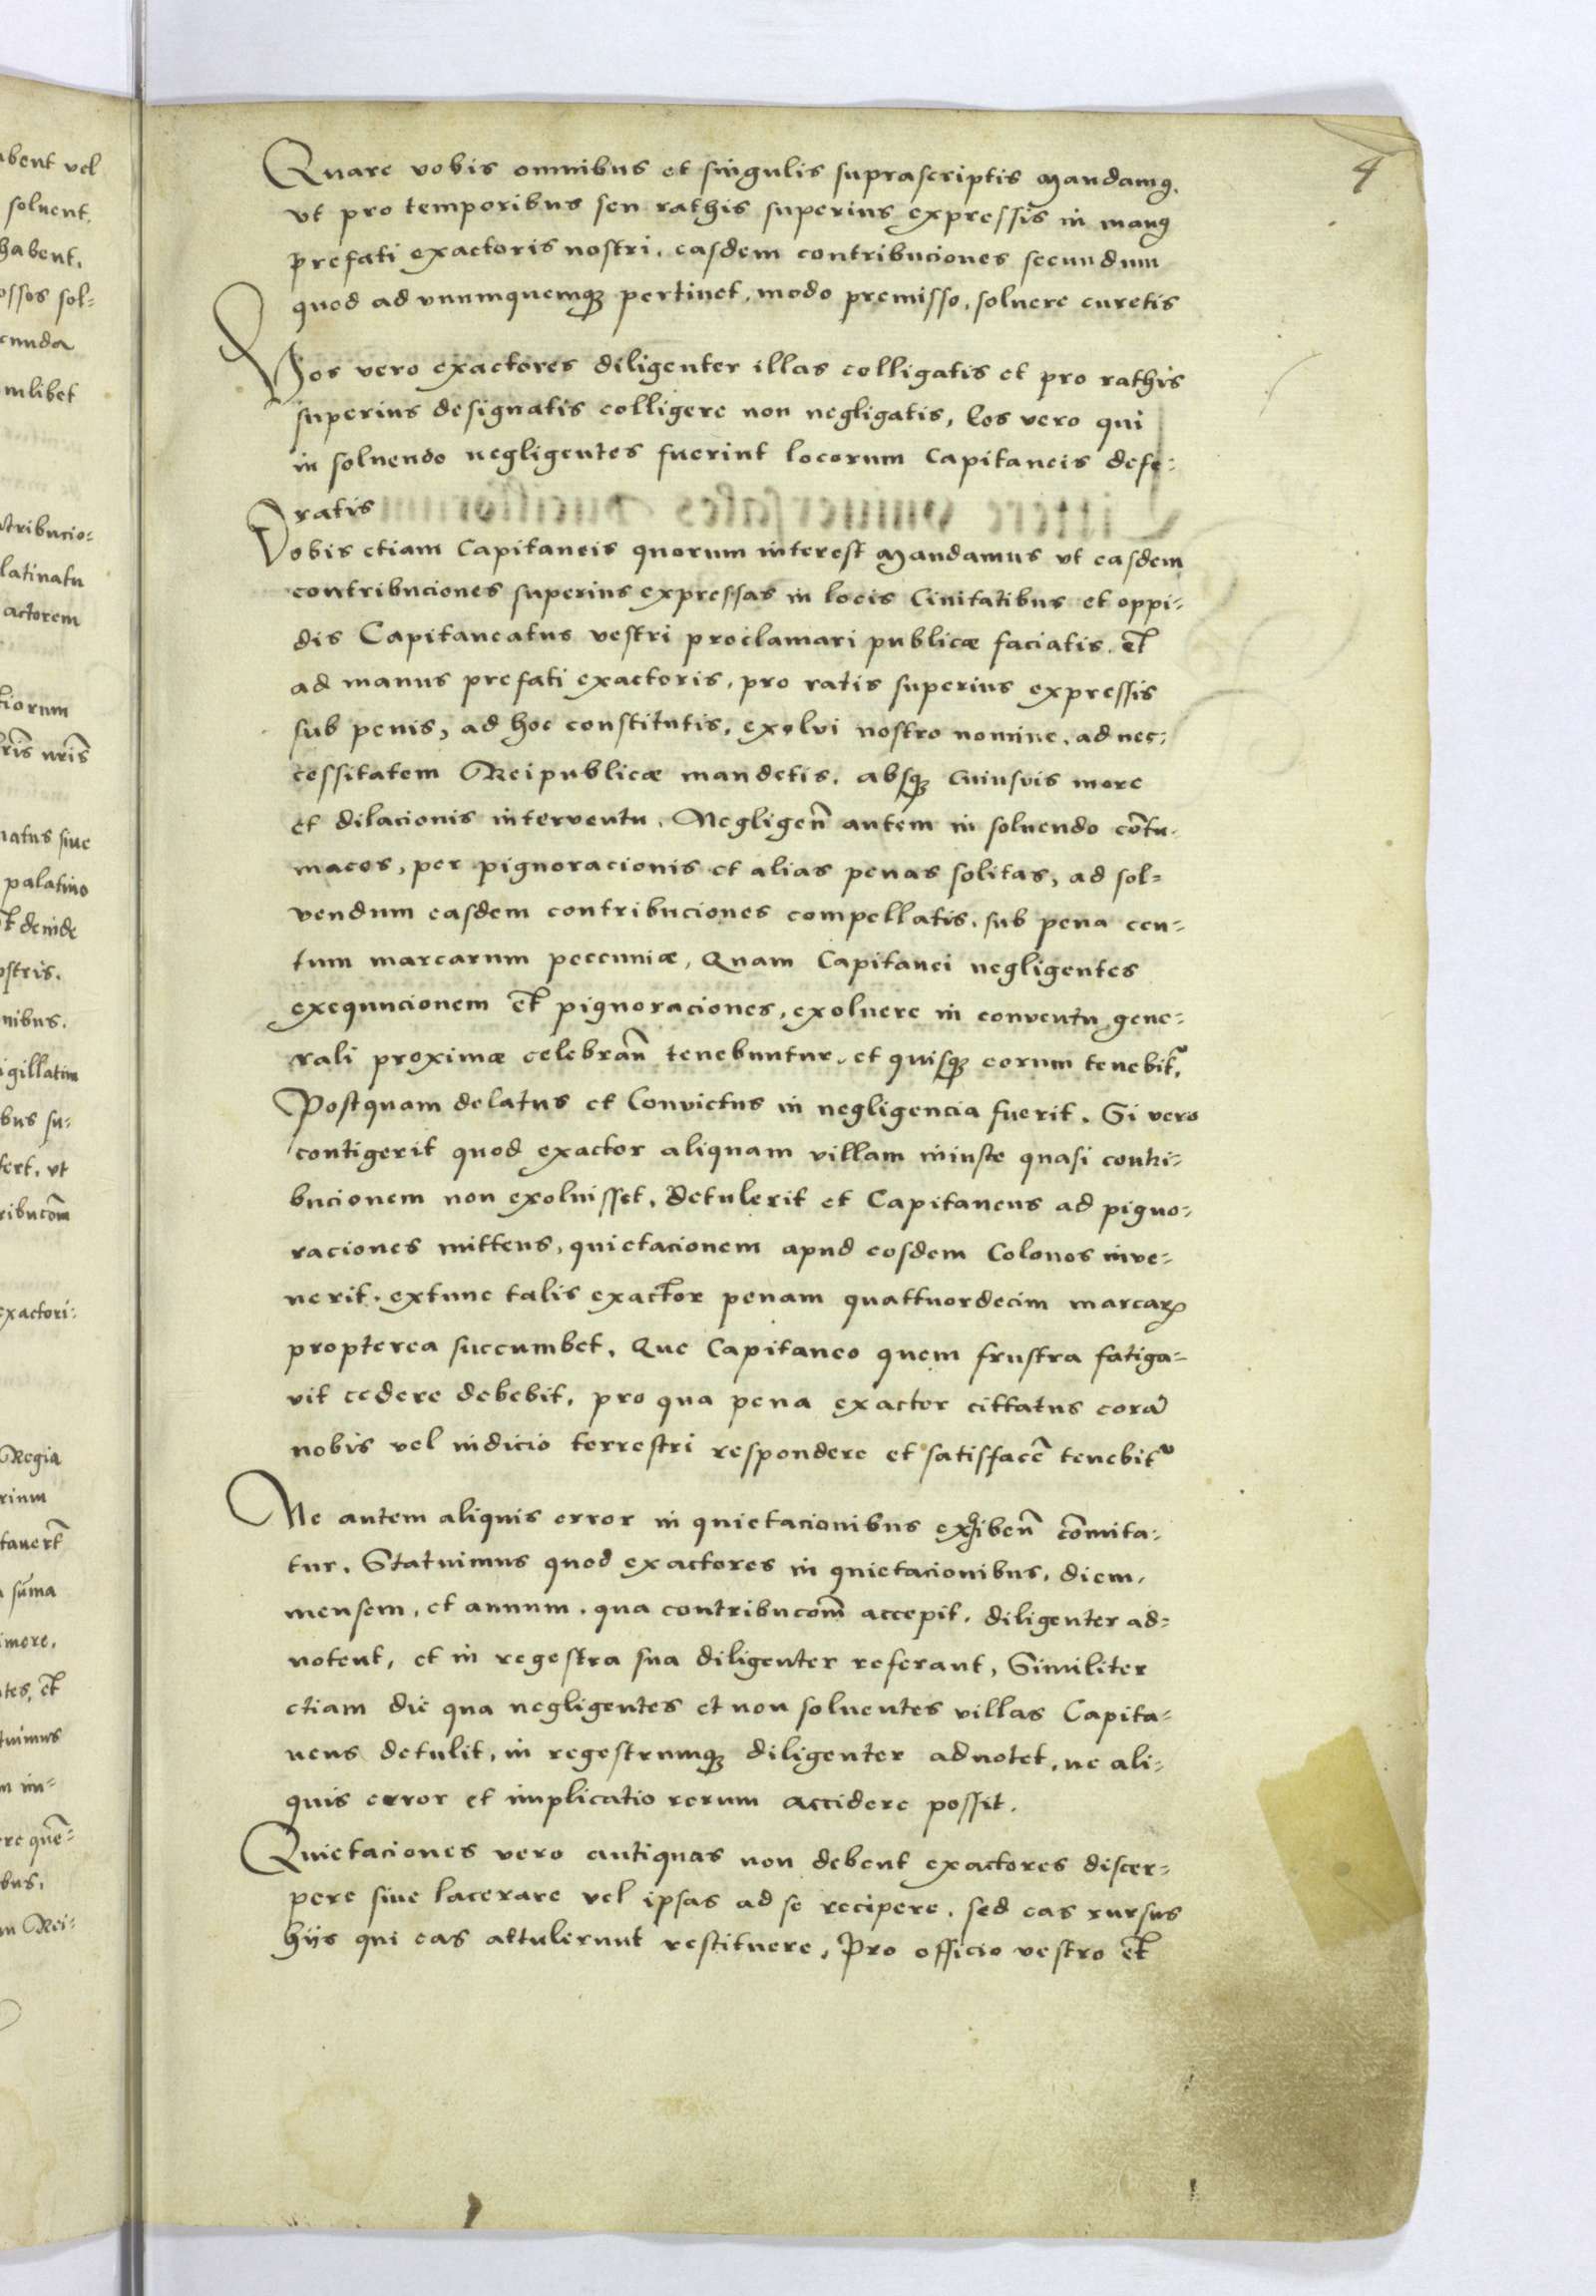 4
Quare vobis omnibus et singulis suprascriptis Mandamꝰ.
vt pro temporibus seu rathis superius expressis in manꝰ
prefati exactoris nostri, easdem contribuciones secundum
quod ad vnumquemqꝫ pertinet, modo premisso, soluere curetis
Vos vero exactores diligenter illas colligatis et pro rathis
superius designatis colligere non negligatis, Eos vero qui
in soluendo negligentes fuerint locorum Capitaneis defe-
ratis
Vobis etiam Capitaneis quorum interest Mandamus vt easdem
contribuciones superius expressas in locis Ciuitatibus et oppi-
dis Capitaneatus vestri proclamari publicæ faciatis. et
ad manus prefati exactoris, pro ratis superius expressis
sub penis, ad hoc constitutis, exolvi nostro nomine, ad nec-
cessitatem Reipublicæ mandetis. absqꝫ cuiusvis more
et dilacionis interventu. Negligen̄ autem in soluendo cōtu-
maces, per pignoracionis et alias penas solitas, ad sol-
vendum easdem contribuciones compellatis. sub pena cen-
tum marcarum peccuniæ, Quam Capitanei negligentes
exequucionem et pignoraciones, exoluere in conventu gene-
rali proximæ celebran̄ tenebuntur. et quisqꝫ eorum tenebit᷑.
Postquam delatus et Convictus in negligencia fuerit. Si vero
contigerit quod exactor aliquam villam iniuste quasi contri-
bucionem non exoluisset, detulerit et Capitaneus ad pigno-
raciones mittens, quietacionem apud eosdem Colonos inve-
nerit. extunc talis exactor penam quattuordecim marcaꝝ
propterea succumbet, Que Capitaneo quem frustra fatiga-
vit cedere debebit, pro qua pena exactor cittatus corā
nobis vel iudicio terrestri respondere et satisfacē tenebit᷑
Ne autem aliquis error in quietacionibus exhiben̄ cōmita-
tur. Statuimus quod exactores in quietacionibus, diem,
mensem, et annum. qua contribucōm accepit. diligenter ad-
notent, et in regestra sua diligenter referant, Similiter
etiam die qua negligentes et non soluentes villas Capita-
neus detulit, in regestrumqꝫ diligenter adnotet, ne ali-
quis error et implicatio rerum accidere possit.
Quietaciones vero antiquas non debent exactores discer-
pere siue lacerare vel ipsas ad se recipere, sed eas rursus
hiis qui eas attulerunt restituere, Pro officio vestro et